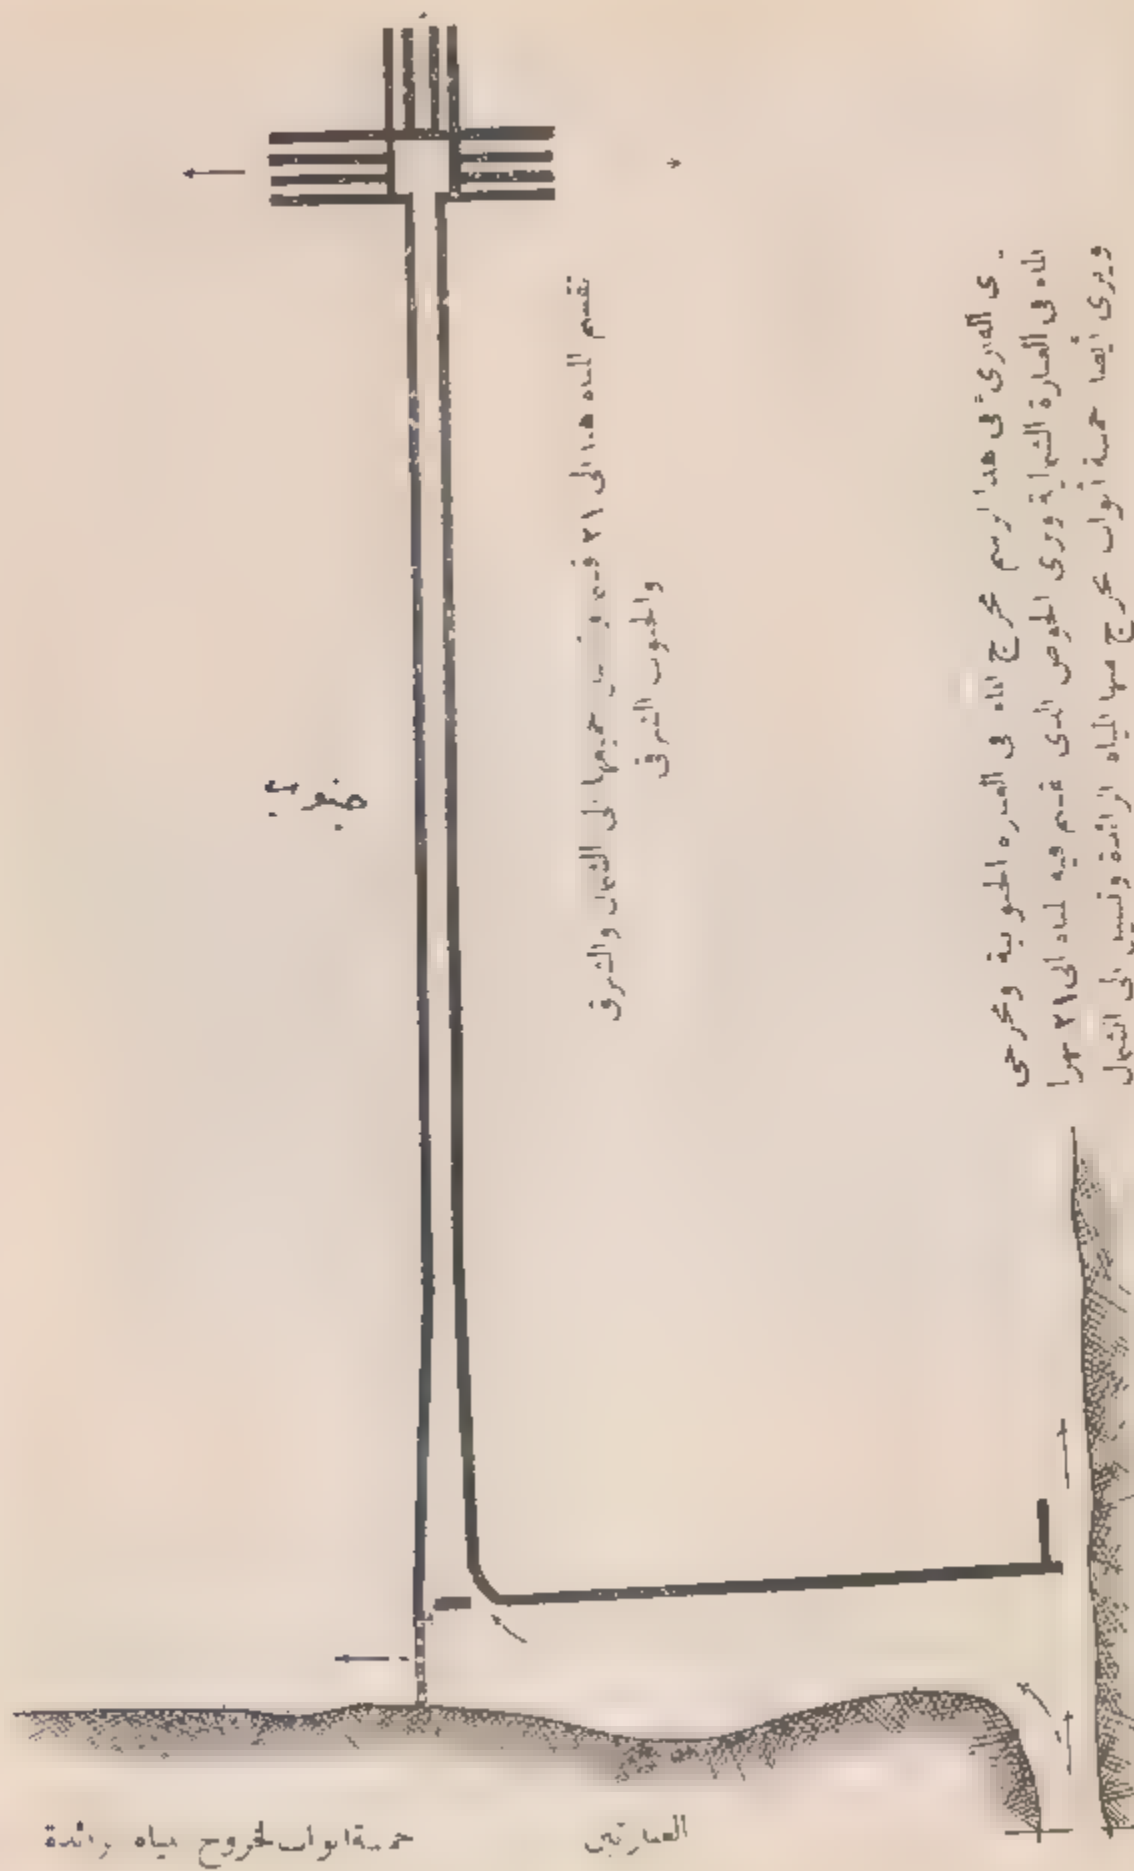 يرى القارئ في هذا الرسم مخرج الماء في العبارة الجنوبية ومخرجي
الماء في العبارة الشمالية ويرى الحوض الذي تقسم فيه المياه الى ٢١ نهرا
ويرى أيضا خمسة أبواب تخرج منها المياه الزائدة وتنسد الى الشمال
تقسم المياه هنا الى ٢١ قسم جميعها الى الشمال والشرق
والجنوب الشرقي
جنوب
العبارتين
خمسة ابواب لخروج مياه زائدة